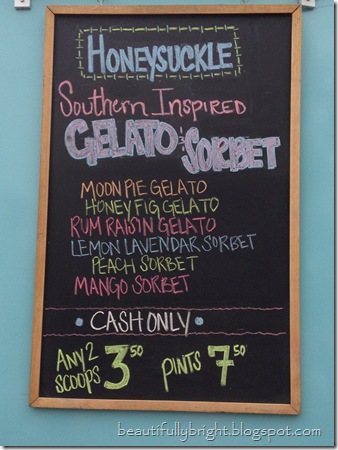 HONEYSUCKLE
SOUTHERN INSPIRED
GELATO & SORBET
MOON PIE GELATO
HONEY FIG GELATO
RUM RAISIN GELATO
LEMON LAVENDAR SORBET
PEACH SORBET
MANGO SORBET
CASH ONLY
ANY 2 SCOOPS 3.50 PINTS 7.50
beautifullybright.blogspot.com